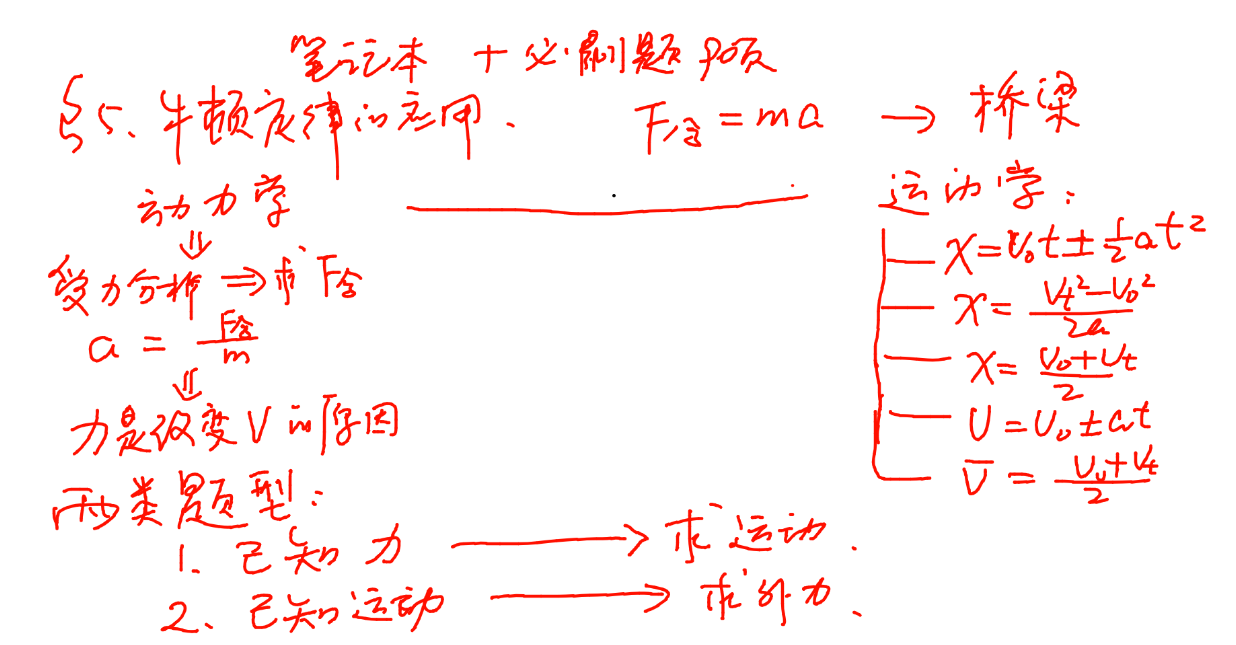 笔记本 + 必刷题 90页
§5. 牛顿定律的应用. F合 = ma → 桥梁
动力学 运动学:
⇓
受力分析 ⇒ 求 F合
a = F合/m
⇓
力是改变V的原因
X = V₀t ± ½at²
X = (Vt² - V₀²)/2a
X = (V₀ + Vt)/2
V = V₀ ± at
V̄ = (V₀ + Vt)/2
两类题型:
1. 已知力 → 求运动.
2. 已知运动 → 求外力.